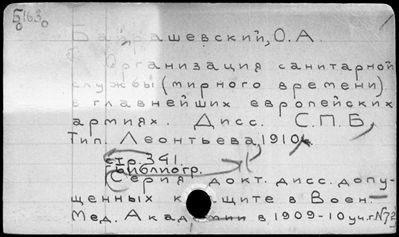 Б163
Байрашевский, О.А.
Организация санитарной
службы (мирного времени)
в главнейших европейских
армиях. Дисс. С.П.Б,
Тип. Леонтьева, 1910.
стр. 341.
библиогр.
(Серия докт. дисс. допу-
щенных к защите в Воен.
Мед. Академии в 1909-10 уч.г. №72)